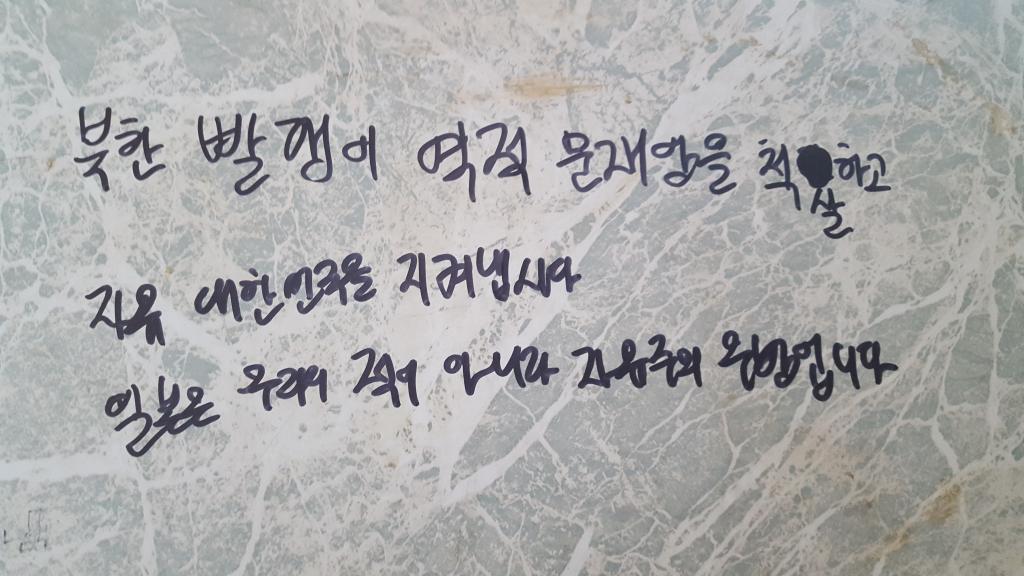 북한 빨갱이 역적 문재앙을 척살하고
자유 대한민국을 지켜냅시다
일본은 우리의 적이 아니라 자유주의 동맹입니다